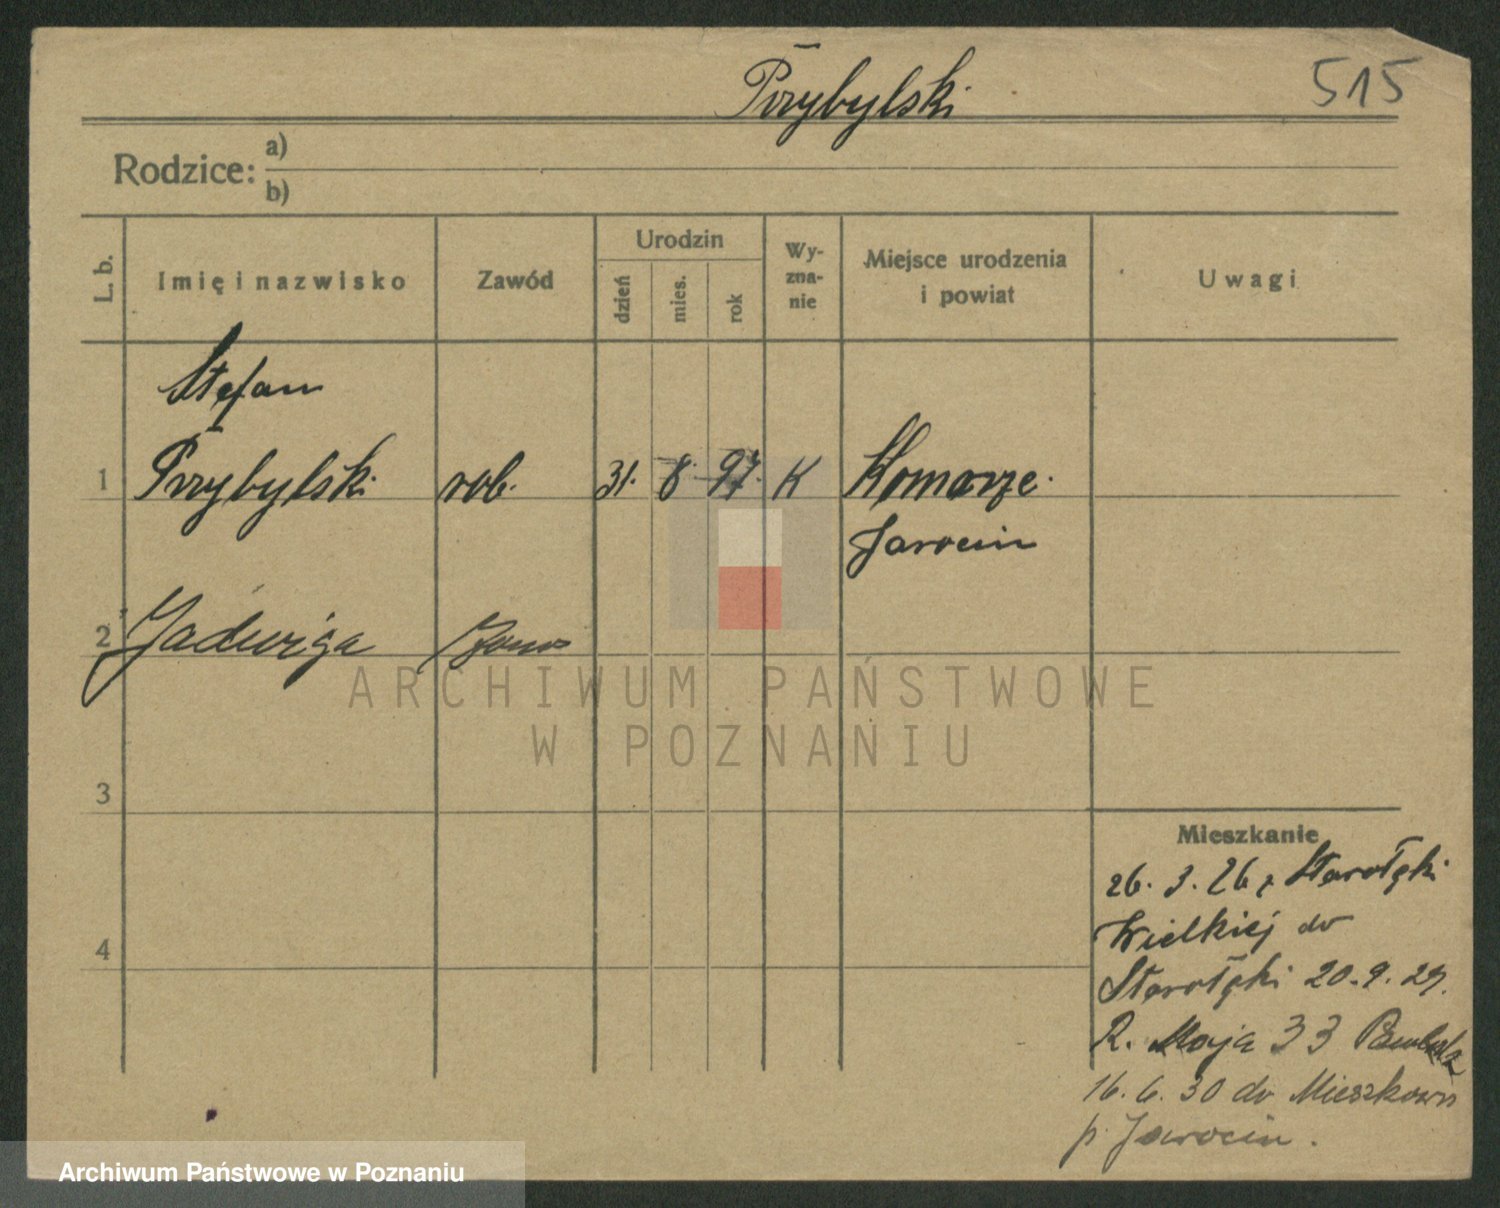 Przybylski
515
Rodzice: a)
b)
L. b.
Imię i nazwisko
Zawód
Urodzin
dzień
mies.
rok
Wy-
zna-
nie
Miejsce urodzenia
i powiat
Uwagi
Stefan
1 Przybylski rob. 31. 8. 97. K Komorze.
Jarocin
2 Jadwiga żona
3
4
Mieszkanie
26. 3. 26 z Starołęki
Wielkiej do
Starołęki 20.9.27.
R. Maja 33
16. 6. 30 do Mieszkowa
p. Jarocin.
ARCHIWUM PAŃSTWOWE
W POZNANIU
Archiwum Państwowe w Poznaniu